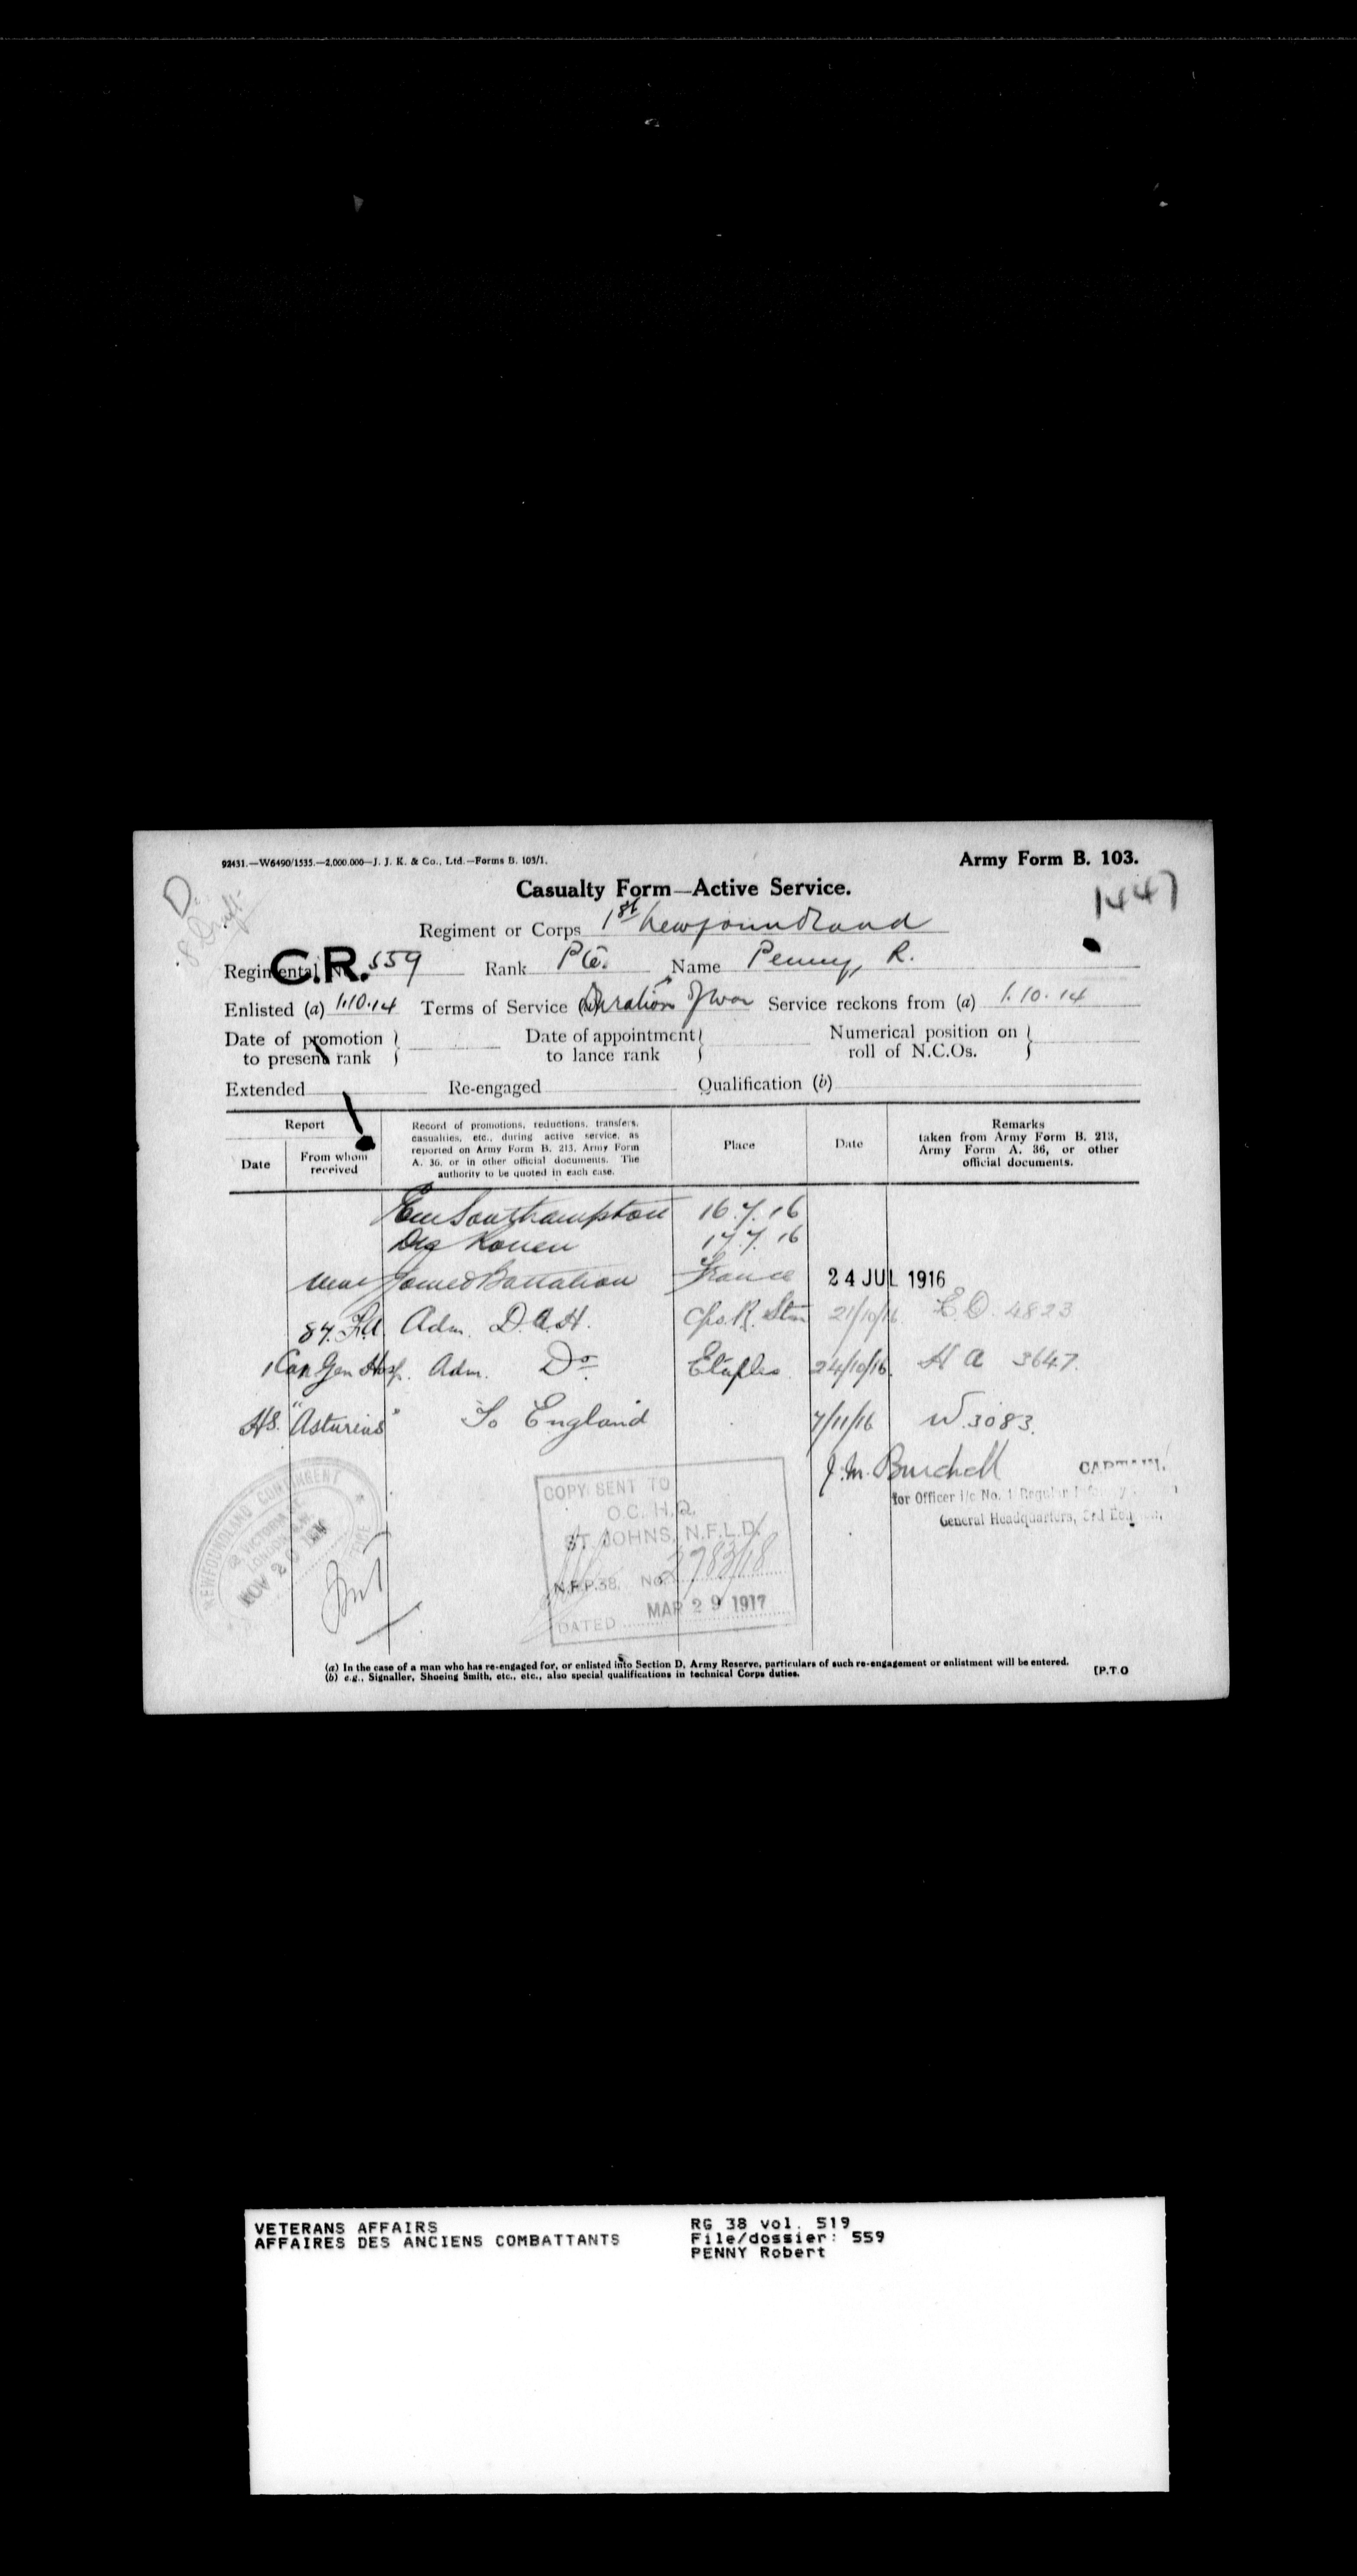 92431.—W6490/1535.—2,000,000—J. J. K. & Co., Ltd.—Forms B. 103/1.
Army Form B. 103.
D.
8 Draft
1447
Casualty Form—Active Service.
Regiment or Corps 1st Newfoundland
C.R.
Regimental No. 559 Rank Pte. Name Penny, R.
Enlisted (a) 1.10.14 Terms of Service (a) Duration of war Service reckons from (a) 1.10.14
Date of promotion to present rank
Date of appointment to lance rank
Numerical position on roll of N.C.Os.
Extended Re-engaged Qualification (b)
Report
Date
From whom received
Record of promotions, reductions, transfers, casualties, etc., during active service, as reported on Army Form B. 213, Army Form A. 36, or in other official documents. The authority to be quoted in each case.
Place
Date
Remarks taken from Army Form B. 213, Army Form A. 36, or other official documents.
Em Southampton 16.7.16
Dis Rouen 17.7.16
Joined Battalion France 24 JUL 1916
87. F.A. Adm. D.A.H. Cps. R. Stn 21/10/16 E.D. 4823
1 Can Gen Hosp. Adm. Do Etaples. 24/10/16. H A 3647.
HS. "Asturias" To England 7/11/16 W.3083.
J. M. Burchell CAPTAIN.
for Officer i/c No. 1 Regular Infantry Section
General Headquarters, 3rd Echelon.
NEWFOUNDLAND CONTINGENT
VICTORIA
LONDON, S.W.
NOV 20
COPY SENT TO
O.C. H.Q.
ST. JOHNS, N.F.L.D.
N.F.P.38. No. 2783/18
DATED MAR 29 1917
(a) In the case of a man who has re-engaged for, or enlisted into Section D, Army Reserve, particulars of such re-engagement or enlistment will be entered.
(b) e.g., Signaller, Shoeing Smith, etc., etc., also special qualifications in technical Corps duties.
[P.T.O
VETERANS AFFAIRS
AFFAIRES DES ANCIENS COMBATTANTS
RG 38 vol. 519
File/dossier: 559
PENNY Robert